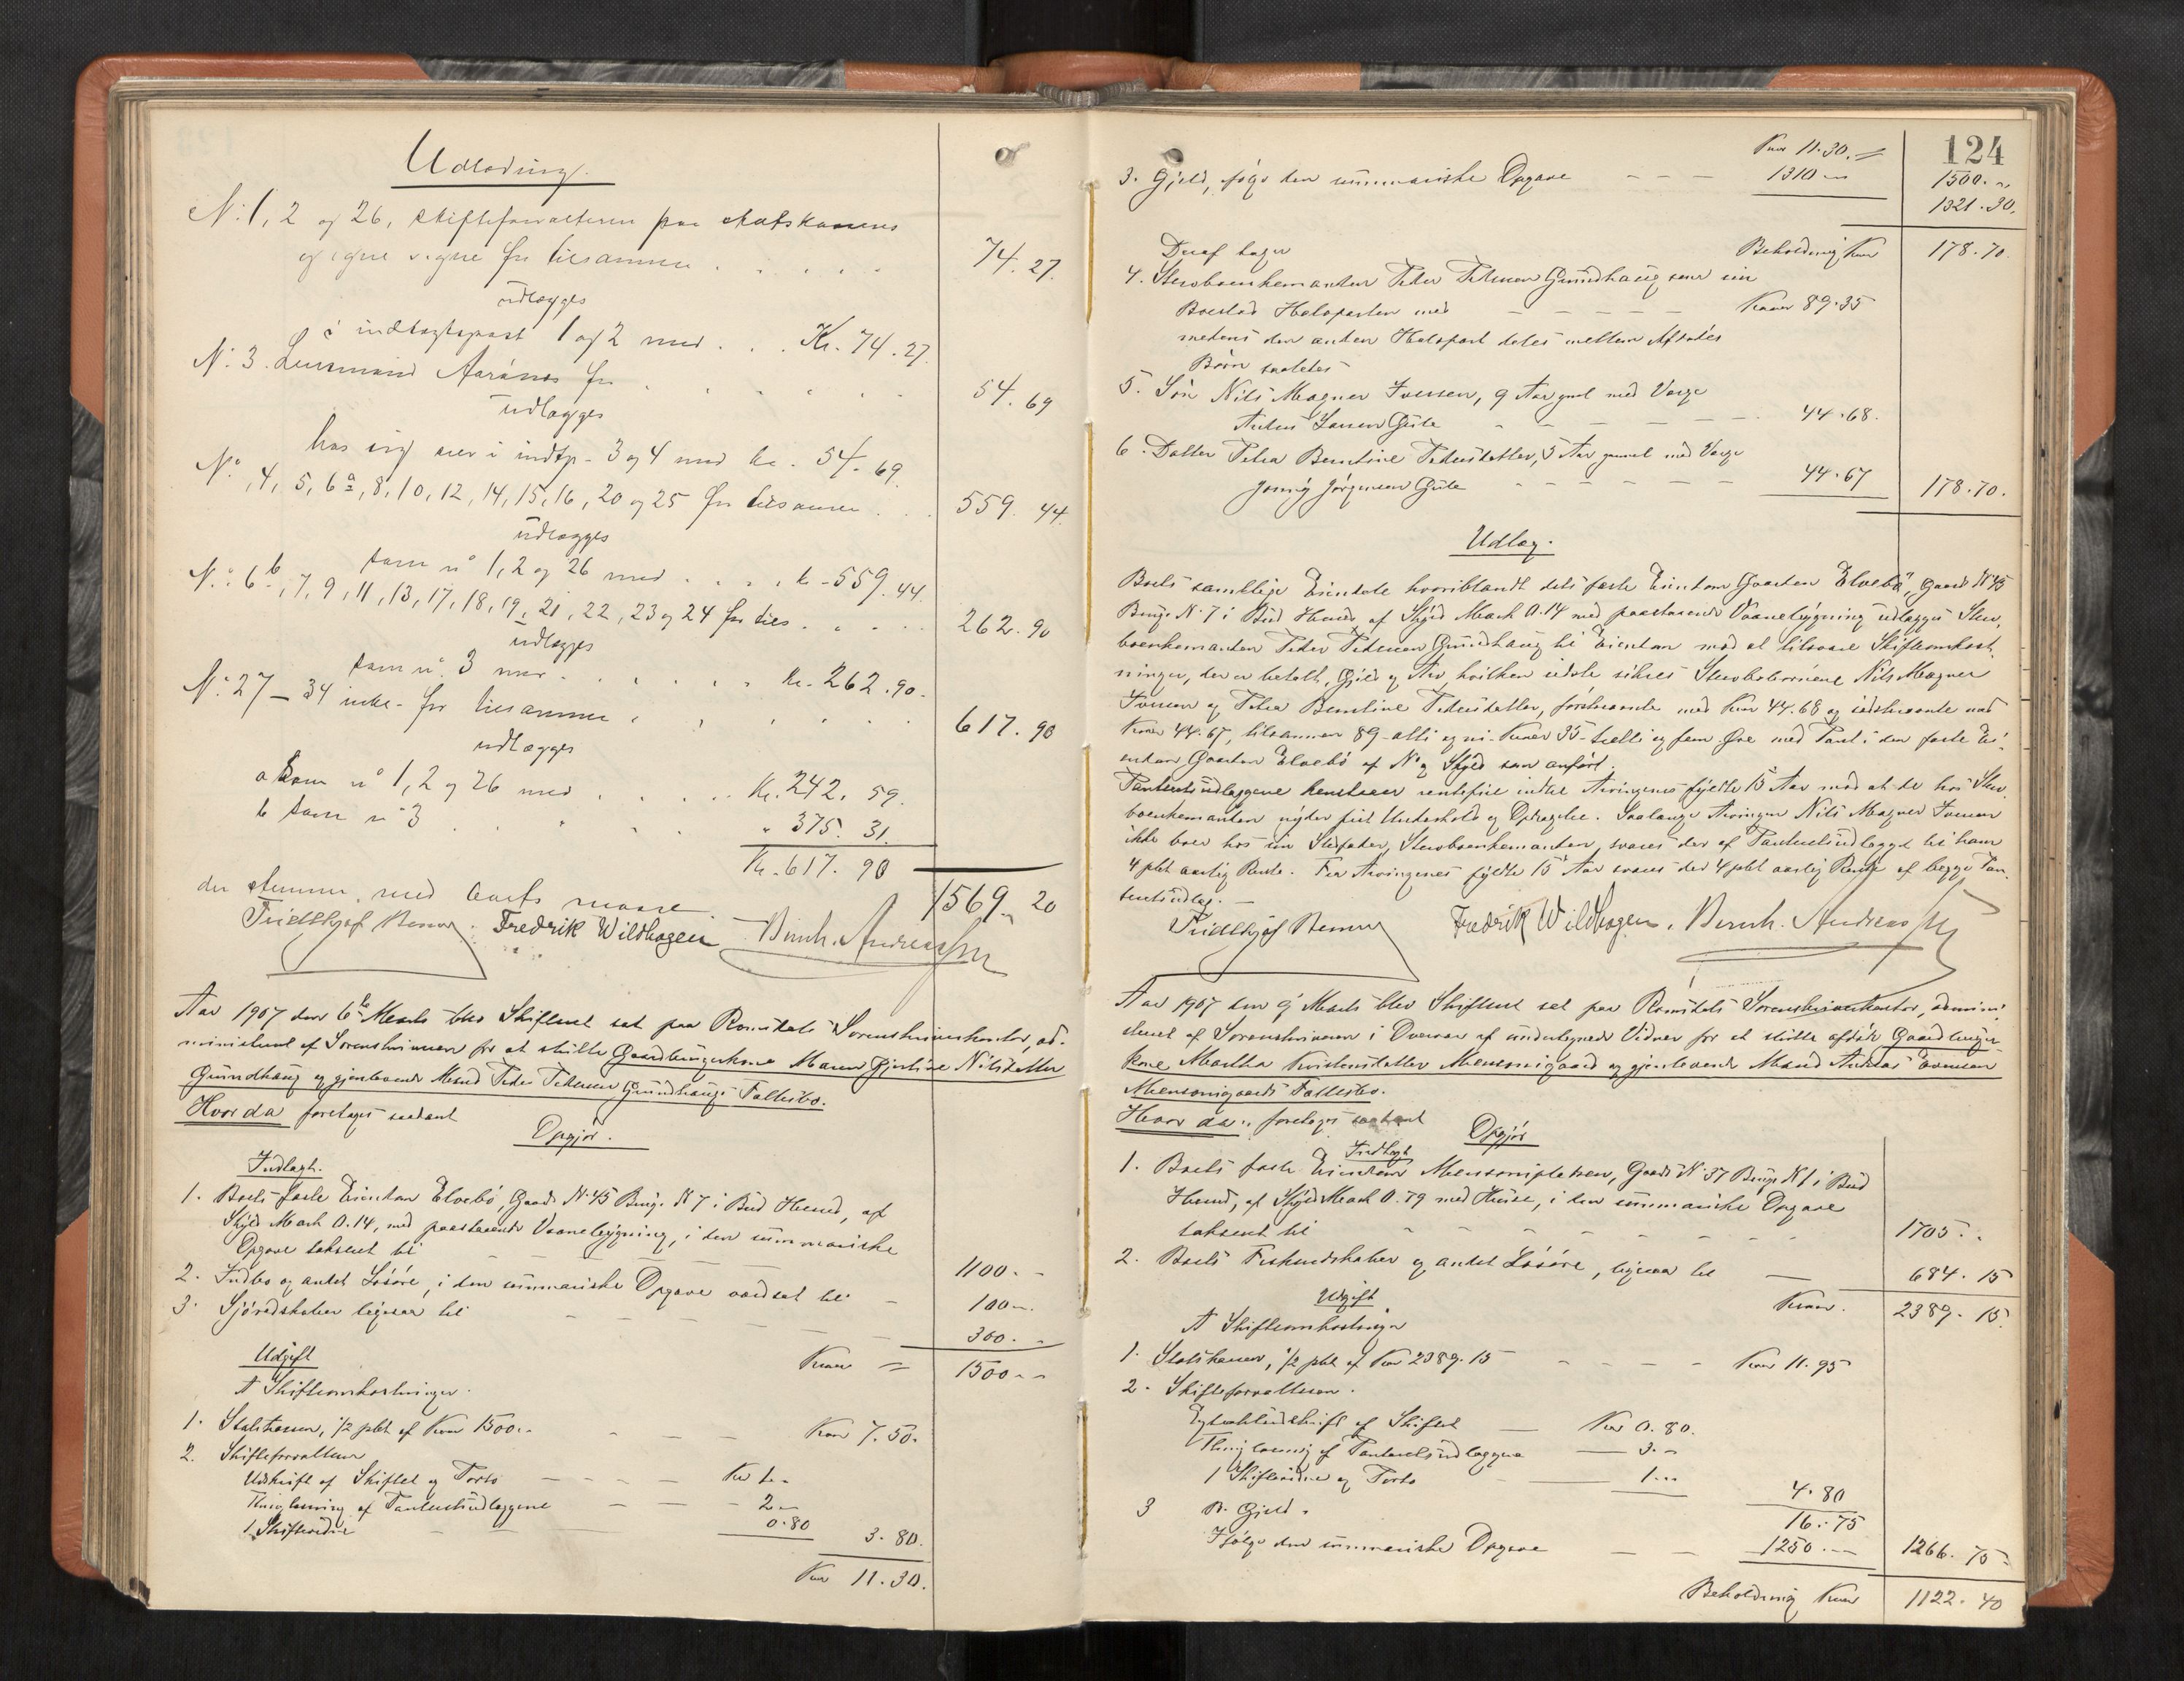 Udlodning.
N: 1, 2 og 26, skifteforvalteren paa statskassens
og egne vegne før tilsammen . . . . . 74. 27.
udlægges
i indtægtspost 1 og 2 med . . . Kr. 74. 27.
N: 3. Lensmand Aarønes før . . . . . 54. 69
udlægges
hos sig selv i indtp. 3 og 4 med kr. 54. 69.
No. 4, 5, 6a, 8, 10, 12, 14, 15, 16, 20 og 25 før tilsammen . . 559. 44.
udlægges
som no 1, 2 og 26 med . . . . kr. 559. 44.
N.o: 6b, 7, 9, 11, 13, 17, 18, 19, 21, 22, 23 og 24 før tils. . . . . 262. 90
udlægges
som no 3 med . . . . . . kr. 262. 90.
No 27 – 34 inkl. før tilsammen . . . . . 617. 90
udlægges
a som no 1, 2 og 26 med . . . . . Kr. 242. 59.
b som no 3 . . . . . " 375. 31.
Kr. 617. 90
1569. 20
der stemmer med boets masse.
Fridthjof Fredrik Wildhagen Bernh. Andreassen
Aar 1907 den 6te Marts blev Skifteret sat paa Romsdals Sorenskriverkontor, ad-
ministreret af Sorenskriveren for at skifte Gaardbrugerkone Maren Gjertine Nilsdatter
Grundhaug og gjenlevende Mand Peder Pedersen Grundhaugs Fællesbo.
Hvorda foretoges saadant
Opgjør.
Indtægt.
1. Boets faste Eiendom Elvebø, Gaards N: 45 Brugs N 7 i Bud Herred, af
Skyld Mark 0.14, med paastaaende Vaanebygning, i den summariske
Opgave taksert til – – – – 1100. –
2. Indbo og andet Løsøre, i den summariske Opgave værdsat til – 100 –.
3. Sjøredskaber ligesaa til – – – – – 300. –
Udgift Kroner = 1500 – –
A Skifteomkostninger.
1. Statskassen, 1/2 pct af Kroner 1500.. – – – Kroner 7.50.
2. Skifteforvalteren
Udskrift af Skiftet og Porto – – – – Kr 1. –
Thinglæsning af Panteudlæggene – – – 2 –
1 Skiftevidne – – – 0.80 3. 80.
Kroner 11. 30.
124
Kroner 11. 30. =
3. Gjæld, følge den summariske Opgave – – – 1310 – 1500. –
1321. 30.
Beholdning Kroner 178. 70.
Deraf tager
4. Stervboenkemanden Peder Pedersen Grundhaug som sin
Boeslod Halvparten med – – – – – Kroner 89.35
medens den anden Halvpart deles mellem Afdødes
Børn saaledes
5. Søn Nils Magner Iversen, 9 Aar gml med Værge
Anton Larsen Gule – – – – – 44.68.
6. Datter Petra Berntine Pedersdatter, 5 Aar gammel med Værge
Jonny Jørgensen Gule – – – – – 44.67 178.70.
Udlæg.
Boets samtlige Eiendele hvoriblandt dets faste Eiendom Gaarden "Elvebø", Gaards N 45
Brugs N: 7 i Bud Herred af Skyld Mark 0.14 med paastaaende Vaanebygning udlægges Sterv-
boenkemanden Peder Pedersen Grundhaug til Eiendom mod at tilsvare Skifteomkost-
ninger, der er betalt, Gjæld og Arv, hvilken sidste sikres Stervbobørnene Nils Magner
Iversen og Petra Berntine Pedersdatter, førstnævnte med Kroner 44.68 og sidstnævnte med
Kroner 44.67, tilsammen 89 – otti og ni – Kroner 35 – tretti og fem – Øre med Pant i den faste Ei-
endom Gaarden Elvebø af No og Skyld som anført.
Panteudlæggene henstaar rentefrit indtil Arvingernes fyldte 15 Aar mod at de hos Sterv-
boenkemanden nyder frit Underhold og Opdragelse. Saalænge Arvingen Nils Magner Iversen
ikke boer hos sin Stedfader, Stervboenkemanden, svares der af Panteudlægget til ham
4 pct aarlig Rente. Fra Arvingernes fyldte 15 Aar svares der 4 pct aarlig Rente af begge Pan-
teudlæg. –
Fridthjof Fredrik Wildhagen. Bernh. Andreassen
Aar 1907 den 9 Marts blev Skifteret sat paa Romsdals Sorenskriverkontor, admini-
streret af Sorenskriveren i Overvær af undertegnede Vidner for at skifte afdøde Gaardbruger-
kone Martha Kristensdatter Mensonsgaard og gjenlevende Mand Andreas Evensen
Mensonsgaards Fællesbo.
Hvor da foretoges saadant
Opgjør
Indtægt
1. Boets faste Eiendom Mensonspladsen, Gaards N: 37 Brugs N 1 i Bud
Herred, af Skyld Mark 0.79 med Huse, i den summariske Opgave
taksert til – – – – – – 1705. .
2. Boets Fiskeredskaber og andet Løsøre, ligesaa til – 684. 15
Udgift Kroner. 2389. 15.
A Skifteomkostninger
1. Statskassen, 1/2 pct af Kroner 2389.15 – – – – Kroner 11.95
2. Skifteforvalteren.
Extraktudskrift af Skiftet – Kr 0.80.
Thinglæsning af Panteudlæggene – 3. –
1 Skiftevidne og Porto – 1. – 4. 80
3 B. Gjæld. 16. 75
Ifølge den summariske Opgave – – 1250. – 1266. 75
Beholdning Kroner 1122. 40